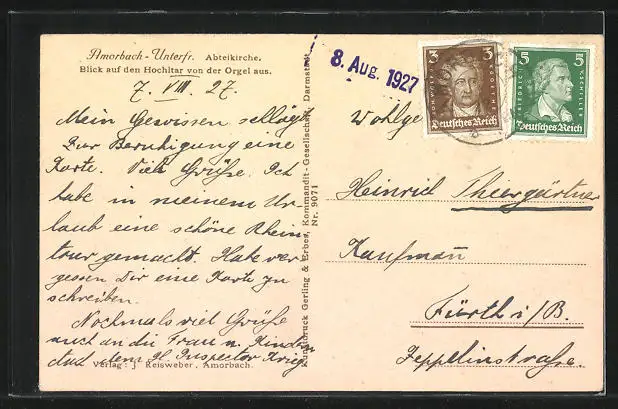 Amorbach - Unterfr. Abteikirche.
Blick auf den Hochltar von der Orgel aus.
7. VIII. 27.
Mein Gewissen schlägt
Zur Beruhigung eine
Karte. Viele Grüße. Ich
habe in meinem Ur-
laub eine schöne Rhein
tour gemacht. Habe ver
gessen Dir eine Karte zu
schreiben.
Nochmals viel Grüße
auch an die Frau u. Kinder
dem Inspector Krieg
Verlag: J. Reisweber, Amorbach.
Gerling & Erbes, Kommandit-Gesellschaft, Darmstadt
Nr. 9071
8. Aug. 1927
3 3
JOH. WOLFG. GOETHE
Deutsches Reich
5 5
FRIEDRICH V. SCHILLER
Deutsches Reich
Wohlge
Heinrich Thiergärtner
Kaufmann
Fürth i/B.
Zeppelinstraße.